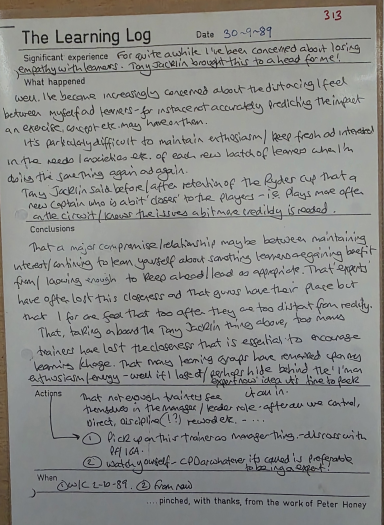 313
The Learning Log Date 30-9-89
Significant experience For quite a while I've been concerned about losing
empathy with learners. Tony Jacklin brought this to a head for me!
What happened
Well. I've become increasingly concerned about the distancing I feel
between myself and learners - for instance not accurately predicting the impact
an exercise, concept etc. may have on them.
It's particularly difficult to maintain enthusiasm / keep fresh and interested
in the needs / anxieties etc. of each new batch of learners when I'm
doing the same thing again and again.
Tony Jacklin said before/after retention of the Ryder Cup that a
new captain who is a bit 'closer' to the players - i.e. plays more often
on the circuit / knows the issues a bit more credibly is needed.
Conclusions
That a major compromise/relationship may be between maintaining
interest/continuing to learn yourself about something learners are gaining benefit
from/ knowing enough to keep ahead/lead as appropriate. That 'experts'
have often lost this closeness and that gurus have their place but
that I for one feel that too often they are too distant from reality.
That, taking on board the Tony Jacklin thing above, too many
trainers have lost the closeness that is essential to encourage
learning/change. That many learning groups have remarked upon my
enthusiasm/energy - well if I lose it/perhaps hide behind the 'I'm an
expert now' idea it's time to pack
it all in.
Actions That not enough trainers see
themselves in the manager / leader role - after all we control,
direct, discipline (!?) reward etc. - ....
① Pick up on this trainer as manager thing. - discuss with
② Watch yourself - CPD or whatever it's called is preferable
to being an expert!
When ① W/C 2-10-89. ② From now
.... pinched, with thanks, from the work of Peter Honey